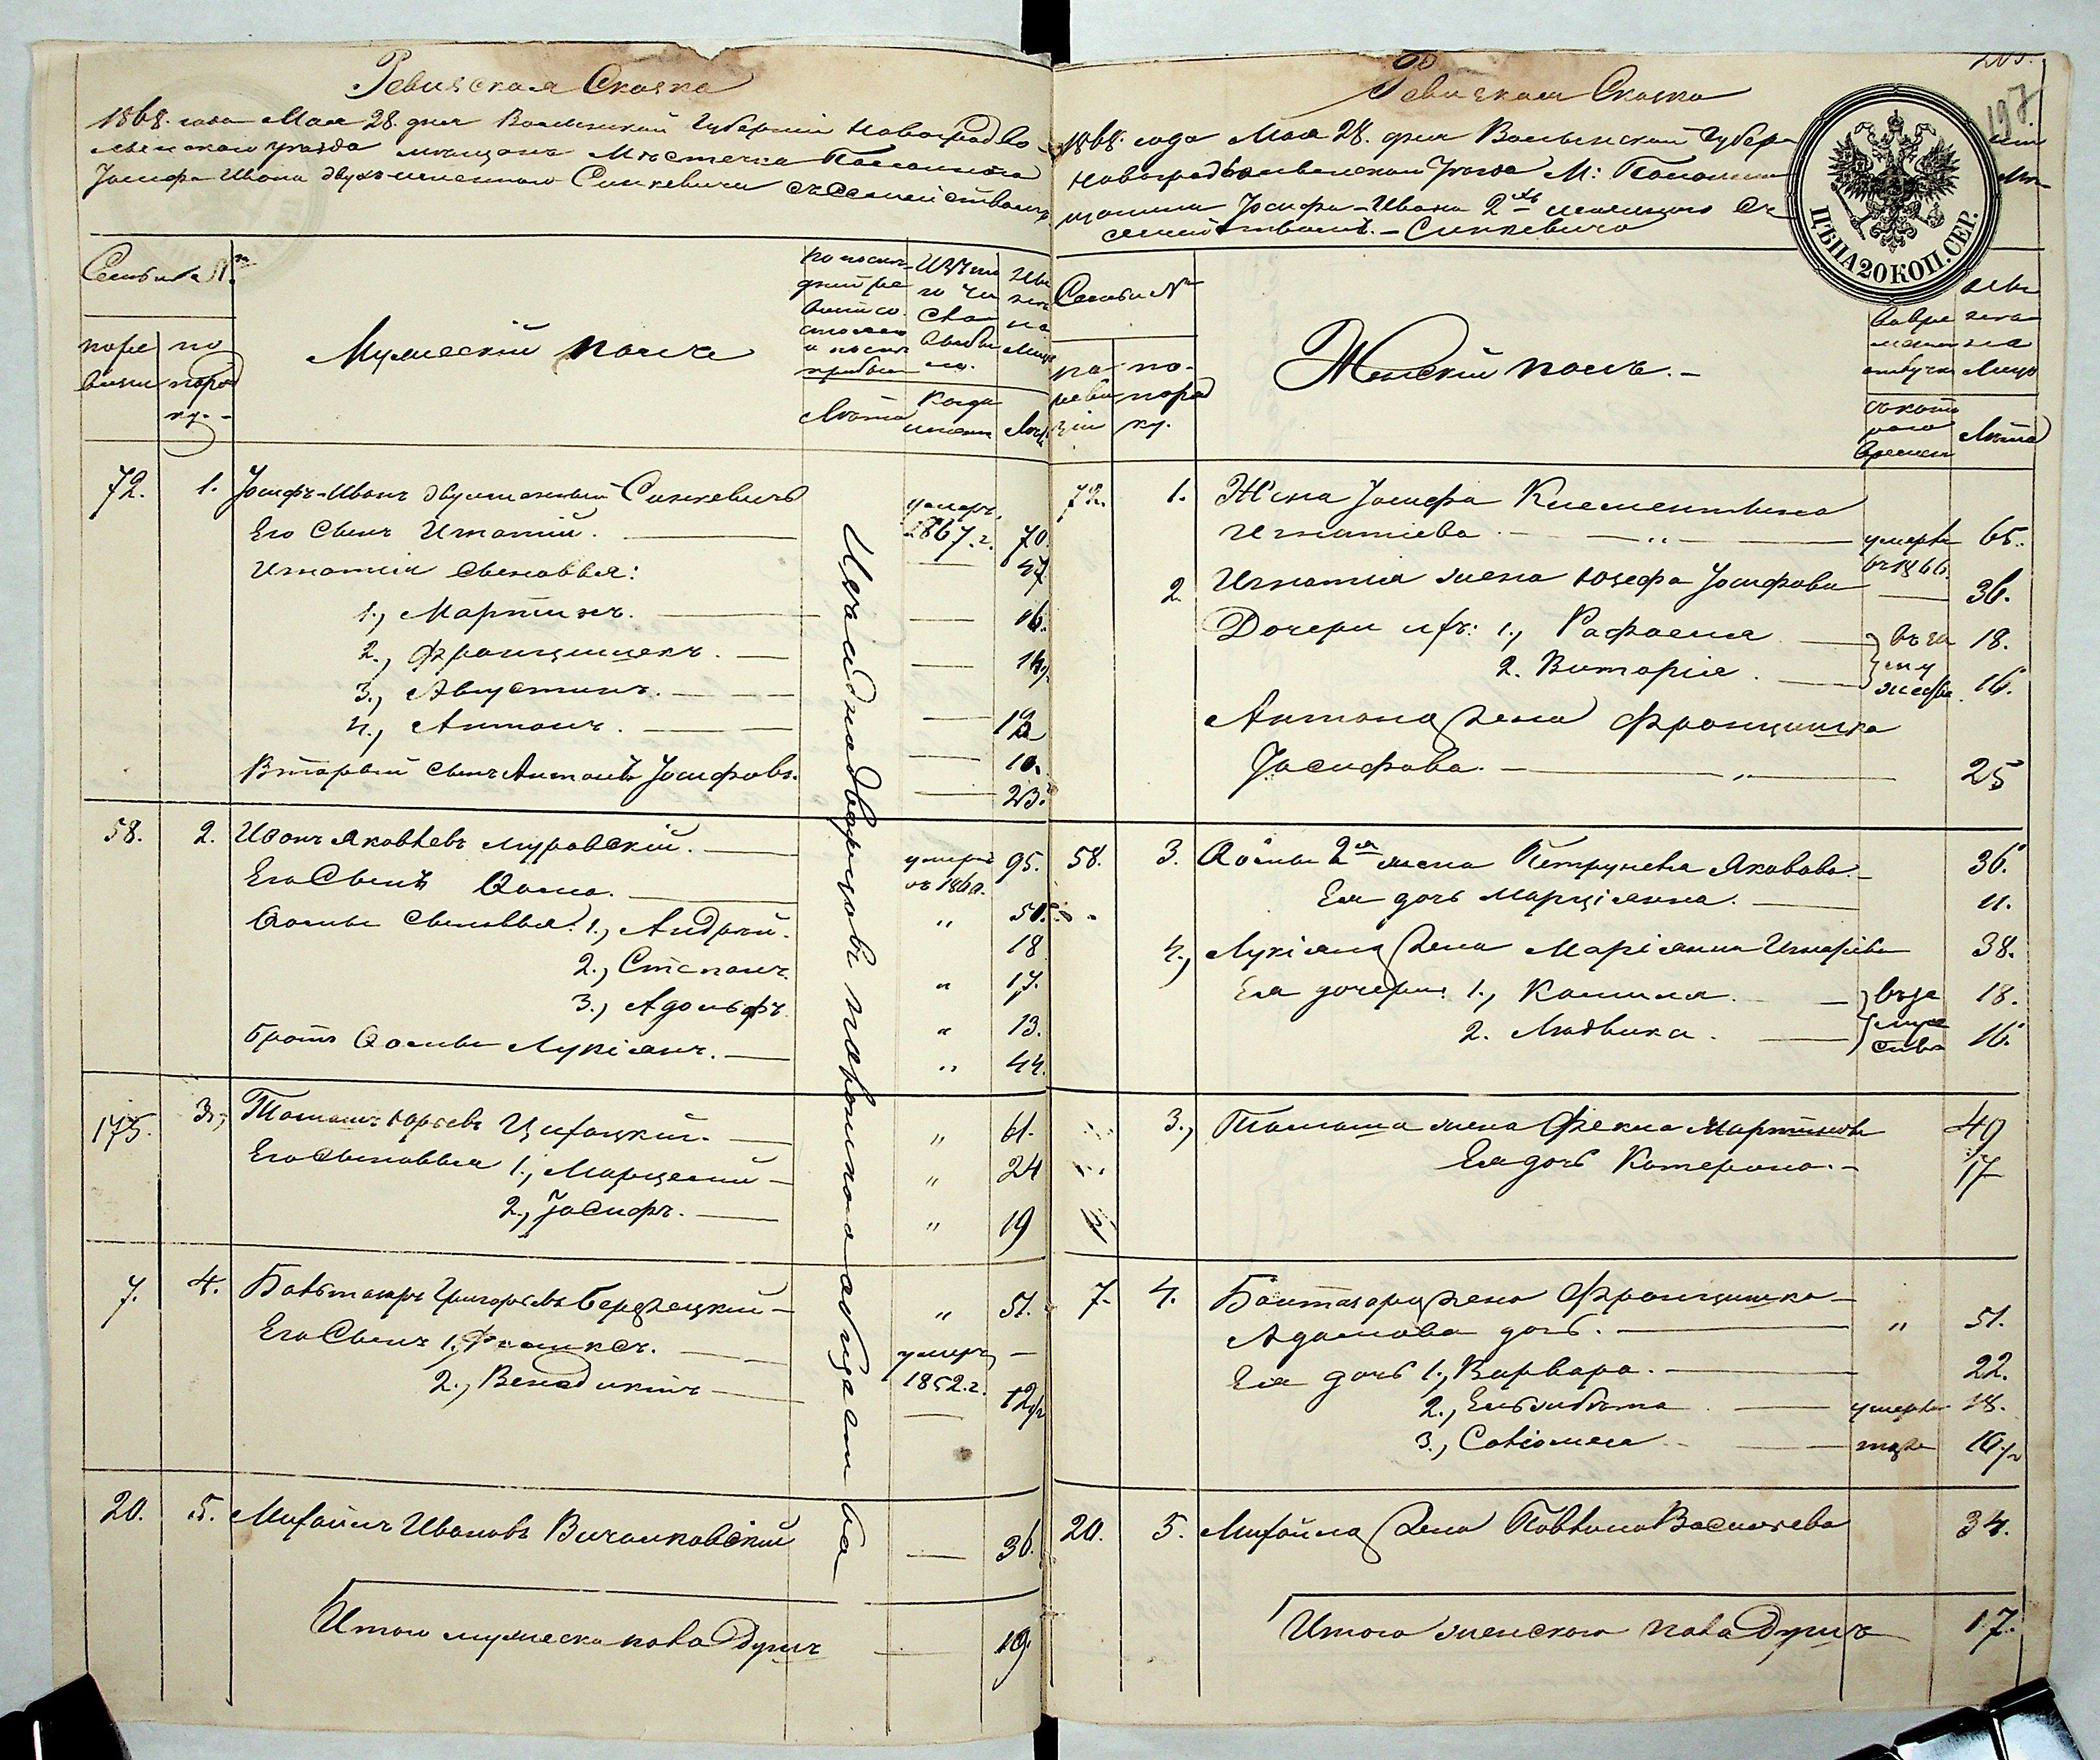 Ревизская Сказка
1868. года Мая 28. дня Волынской Губернии Новоградво-
лынскаго уезда мещанъ Местечка Полоннаго
Іосифа Ивана двухъименнаго Синкевича съ Семействомъ
Семьи №
по ре
визіи
по
поряд
ку.
Мужескій полъ
по послѣ-
дней ре
визіи со
стояло
и послѣ
прибыло
Лѣта
Изъ ни
го чи
сла
выбы
ло.
Когда
именно
Ны
нѣ
на
лицо
Лѣта
72. 1. Іосифъ-Иванъ двуименный Синкевичъ умеръ 1867. г. 70.
Его Сынъ Игнатій. 47
Игнатія Сыновья:
1., Мартинъ. 16.
2., Францишекъ. 14.
3., Августинъ. 12
4., Антонъ. 10.
Вторый сынъ Антонъ Іосифовъ. 23.
58. 2. Иванъ Яковлевъ Муровскій. умеръ въ 1860. 95.
Его Сынъ Ѳома. " 50.
Ѳомы Сыновья: 1., Андрей. 18
2., Степанъ. " 17.
3., Адольфъ. " 13.
братъ Ѳомы Лукіянъ. " 44.
175. 3., Томашъ Юрьевъ Цихоцкій. " 61.
Его Сыновья 1., Марцелий " 24
2., Іосифъ. " 19
7. 4. Балтазаръ Григорьевъ Бержецкий " 51.
Его Сынъ 1., Феликсъ. умеръ 1852. г.
2., Венедиктъ 12
20. 5. Михайлъ Ивановъ Вичалковскій 36.
Итого мужеска пола Душъ 19.
Изъ однодворцовъ полонскаго общества
Ревизская Сказка
1868. года Мая 28. дня Волынской Губер- нии
Новоградволынского Уезда М: Полоннаго Мѣ-
щанина Іосифа-Ивана 2хъ именнаго Съ
семействомъ. - Синкевича
197.
ЦѢНА 20 КОП. СЕР.
Семьи №
по
реви
зіи
по-
поряд
ку.
Женскій полъ. -
Во вре
менной
отлучкѣ
съ кото
раго
времени
Ны
нѣ
на
Лицо
Лѣта
72. 1. Жена Іосифа Клементина
Игнатіева " умерла въ 1866. 65.
2. Игнатія жена Юзефа Іосифова 36.
Дочери ихъ: 1., Рафаела 18.
2. Викторія 16.
въ за
му
жестве.
Антона Жена Францишка
Іосифова. " 25
58. 3. Ѳомы 2я жена Петрунела Яковова. 36.
Ея дочь Марціянна. 11.
4., Лукіяна Жена Маріянна Игнатіева 38.
Ея дочери: 1., Камиля. 18.
2. Людвика. 16.
въ за
муже
стве
3., Томаша жена Фекла Мартинова 49
Ея дочь Катерина. - 17
7. 4. Балтазара Жена Францишка
Адамова дочь. " 51.
Ея дочь 1., Варвара. 22.
2., Ельзибѣта умерла 18.
3., Саломея тоже 10
20. 5. Михайла Жена Павлина Васильева 34.
Итого женскаго пола Душъ 17.